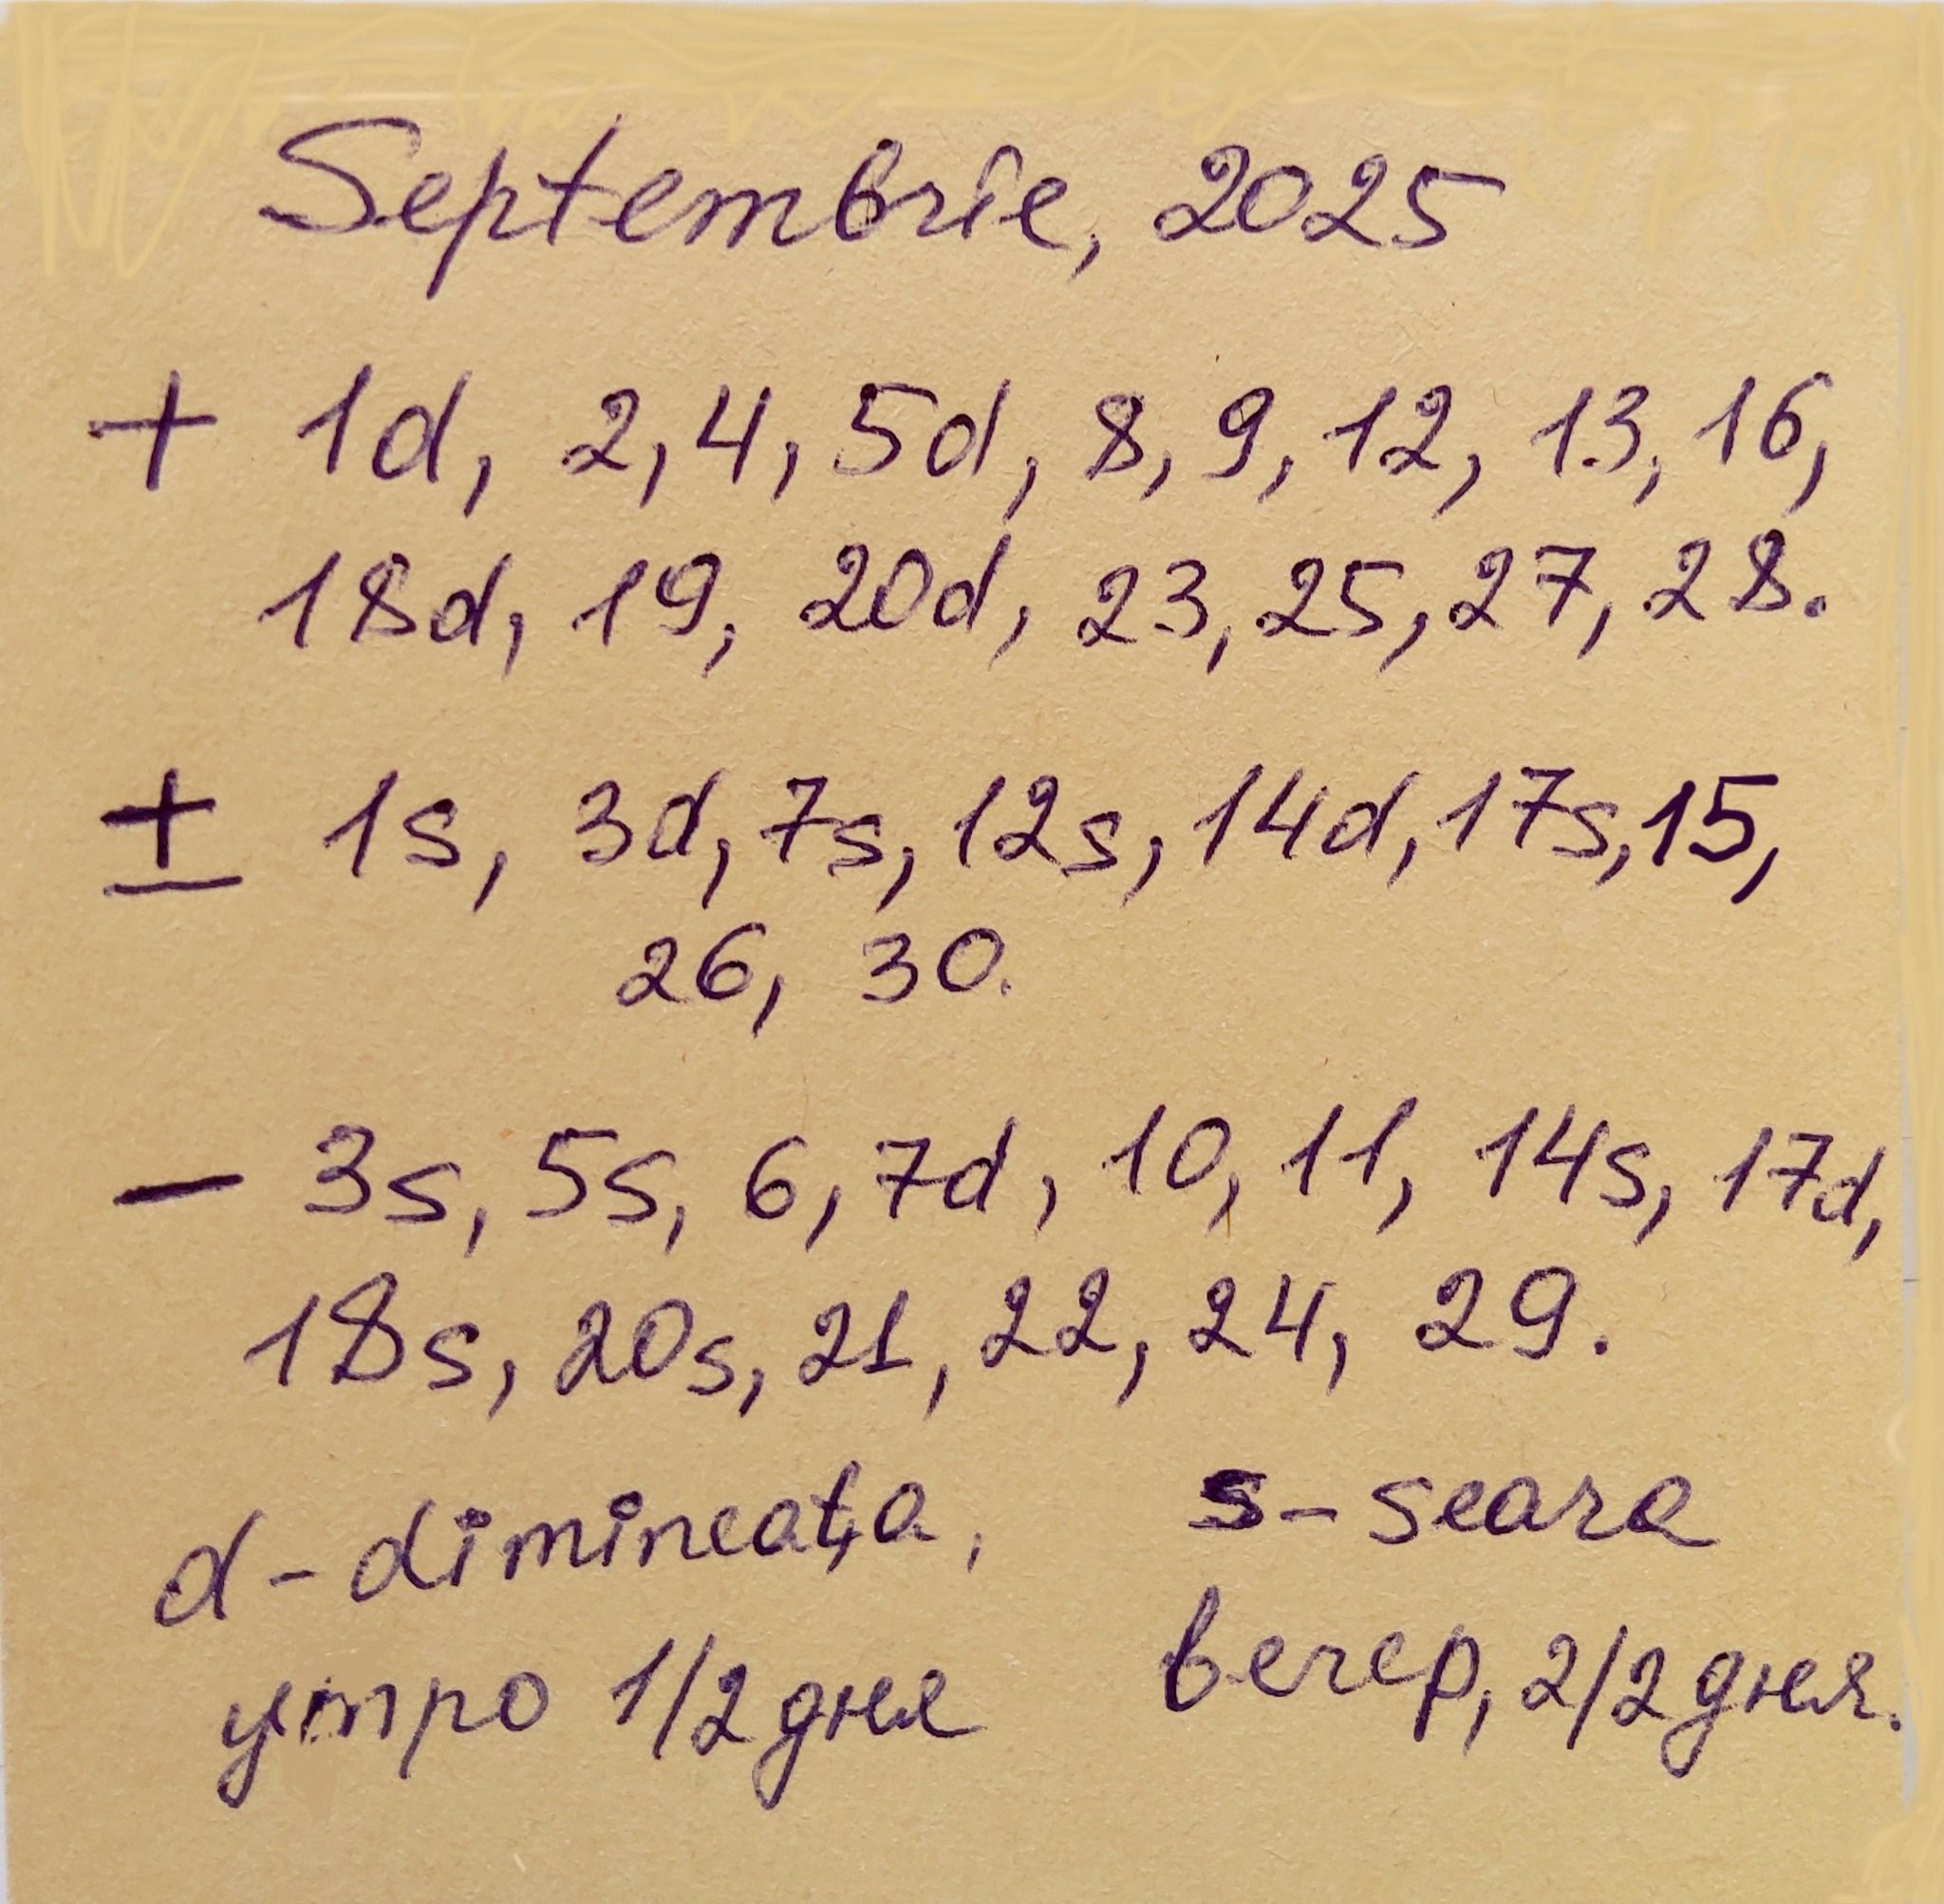 Septembrie, 2025
+ 1d, 2, 4, 5d, 8, 9, 12, 13, 16,
18d, 19, 20d, 23, 25, 27, 28.
± 1s, 3d, 7s, 12s, 14d, 17s, 15,
26, 30.
- 3s, 5s, 6, 7d, 10, 11, 14s, 17d,
18s, 20s, 21, 22, 24, 29.
d - dimineața, s - seara
утро 1/2 дня вечер, 2/2 дня.